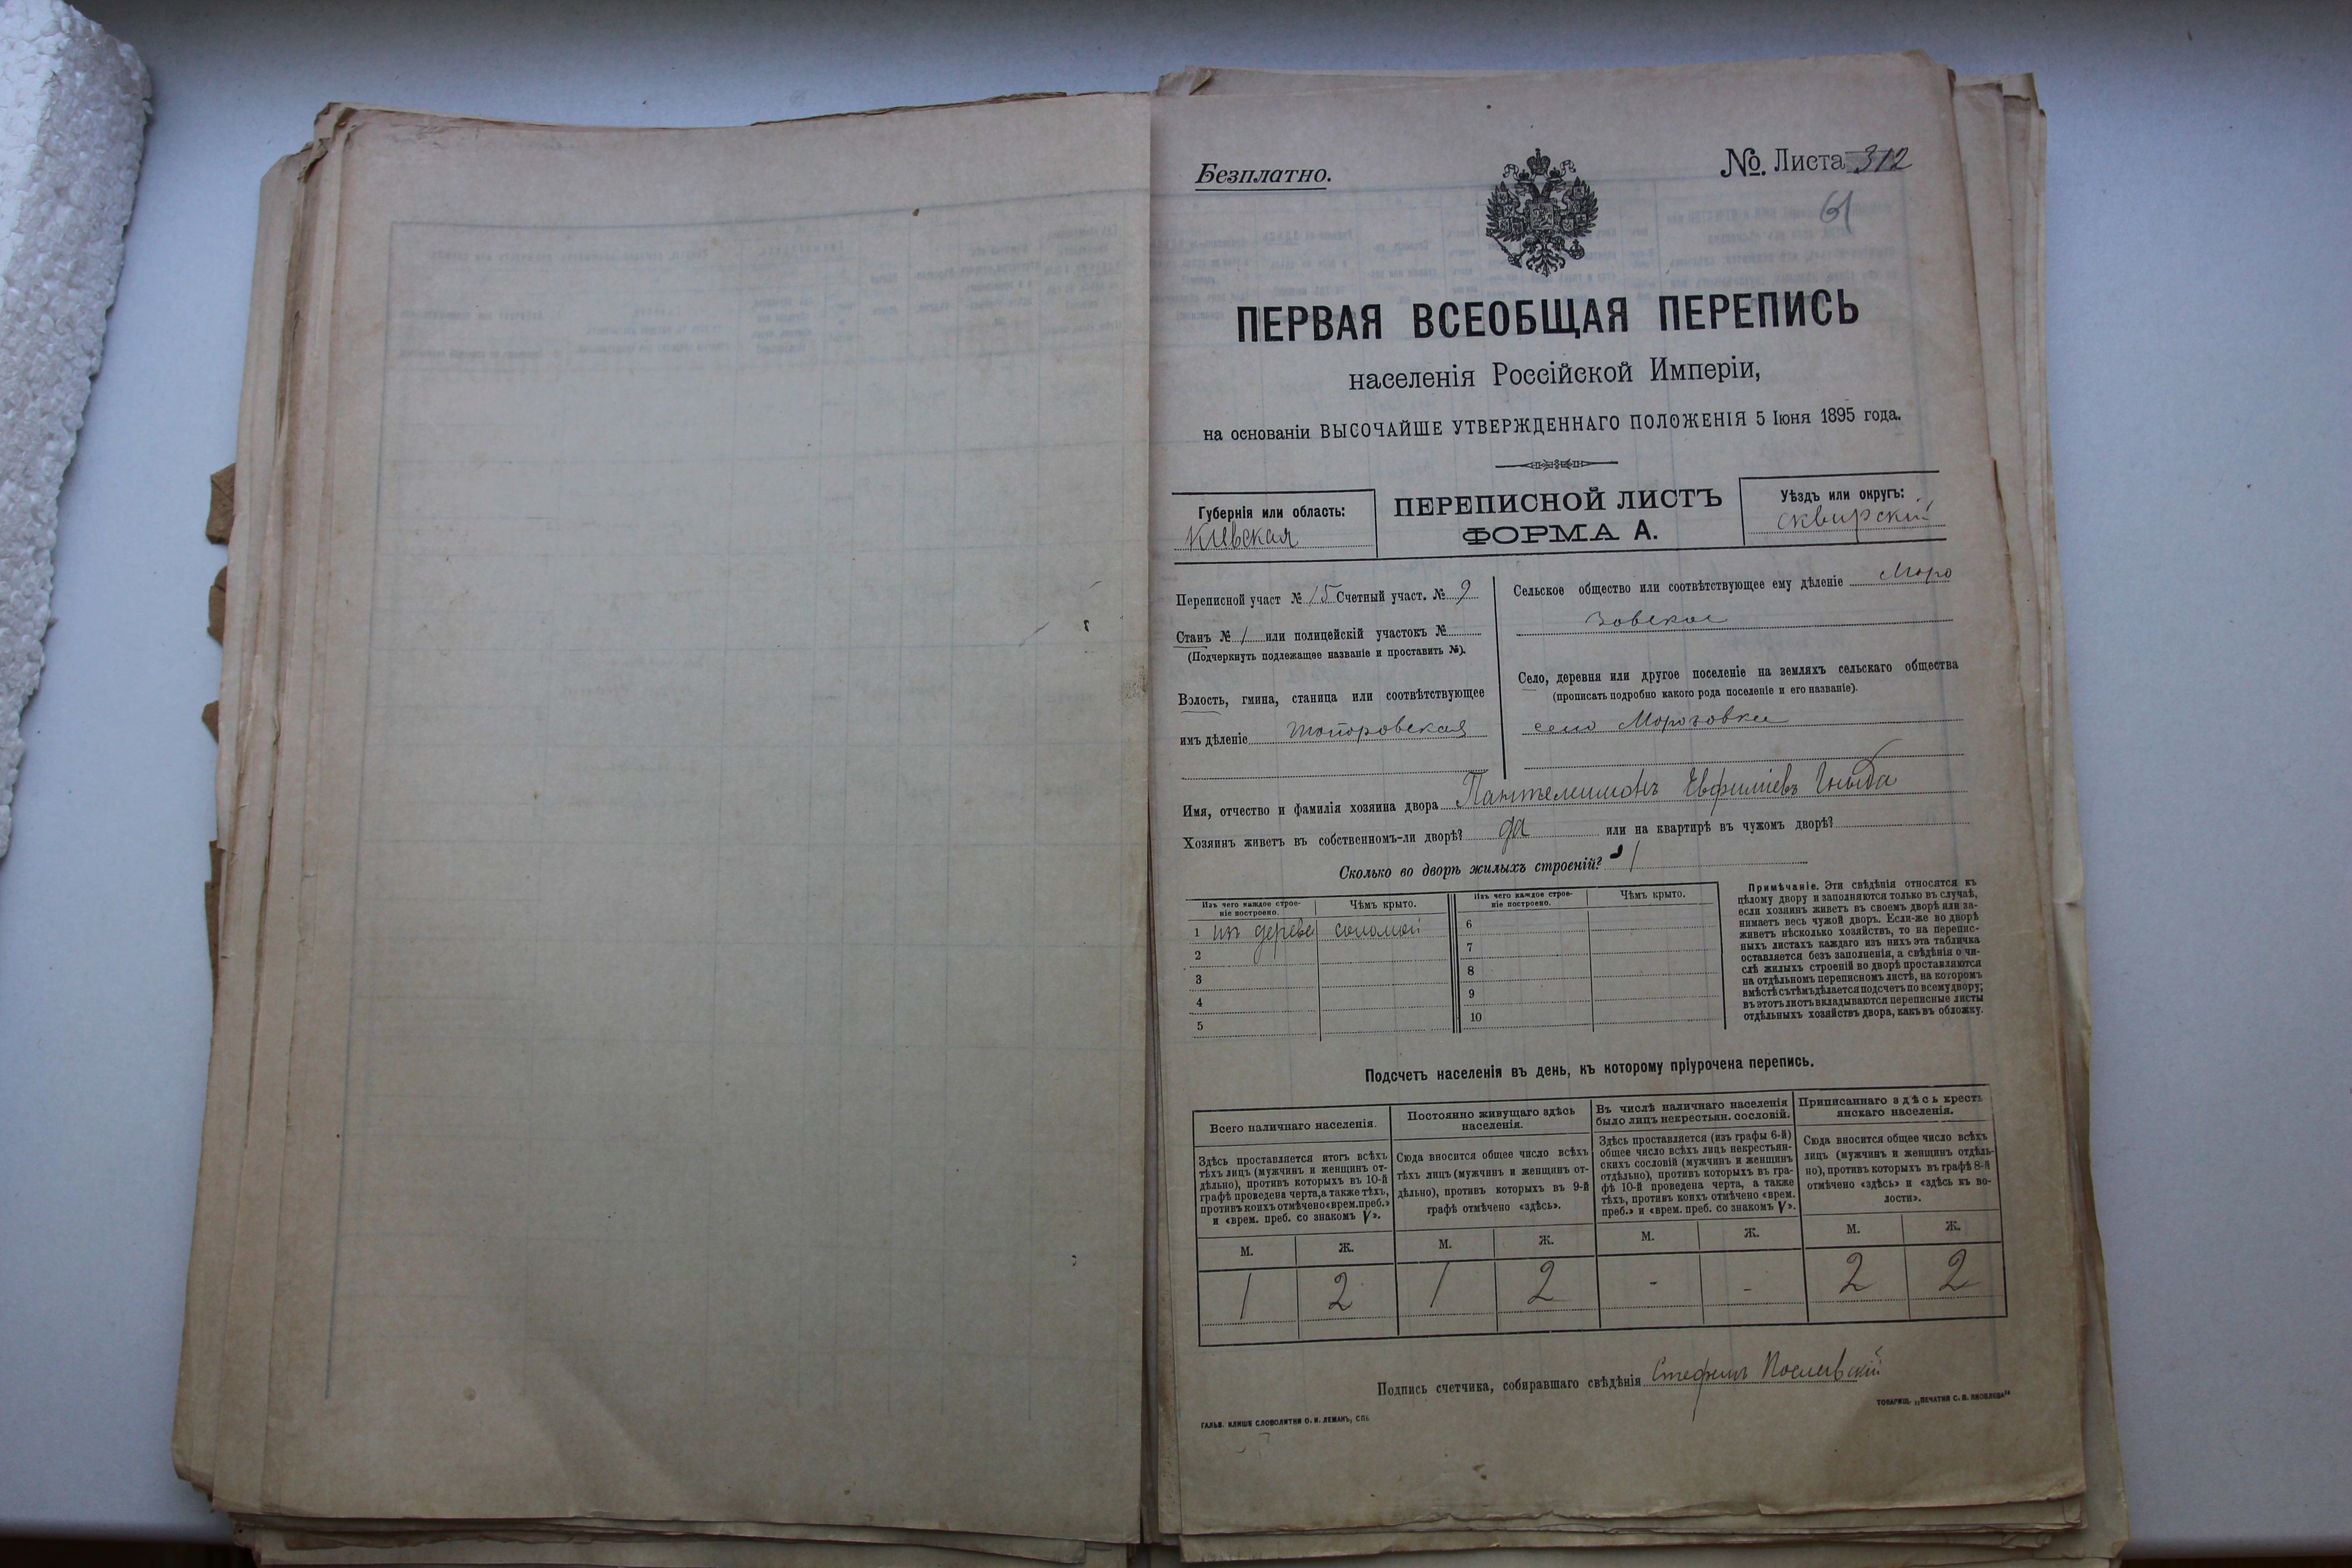 Безплатно.
№. Листа 312
61
ПЕРВАЯ ВСЕОБЩАЯ ПЕРЕПИСЬ
населенія Россійской Имперіи,
на основаніи ВЫСОЧАЙШЕ УТВЕРЖДЕННАГО ПОЛОЖЕНІЯ 5 Іюня 1895 года.
Губернія или область:
Кіевская
ПЕРЕПИСНОЙ ЛИСТЪ
ФОРМА А.
Уѣздъ или округъ:
Сквирскій
Переписной участ № 15 Счетный участ. № 9
Станъ № 1 или полицейскій участокъ №
(Подчеркнуть подлежащее названіе и проставить №).
Волость, гмина, станица или соотвѣтствующее
имъ дѣленіе Топоровская
Сельское общество или соотвѣтствующее ему дѣленіе Моро
зовское
Село, деревня или другое поселеніе на земляхъ сельскаго общества
(прописать подробно какого рода поселеніе и его названіе).
село Морозовка
Имя, отчество и фамилія хозяина двора Пантелимонъ Евфиміевъ
Хозяинъ живетъ въ собственномъ-ли дворѣ? да или на квартирѣ въ чужомъ дворѣ?
Сколько во дворѣ жилыхъ строеній? 1
Изъ чего каждое строе-
ніе построено.
Чѣмъ крыто.
Изъ чего каждое строе-
ніе построено.
Чѣмъ крыто.
1 изъ дерева соломой
2
3
4
5
6
7
8
9
10
Примѣчаніе. Эти свѣдѣнія относятся къ
цѣлому двору и заполняются только въ случаѣ,
если хозяинъ живетъ въ своемъ дворѣ или за-
нимаетъ весь чужой дворъ. Если-же во дворѣ
живетъ нѣсколько хозяйствъ, то на перепис-
ныхъ листахъ каждаго изъ нихъ эта табличка
оставляется безъ заполненія, а свѣдѣнія о чи-
слѣ жилыхъ строеній во дворѣ проставляются
на отдѣльномъ переписномъ листѣ, на которомъ
вмѣстѣ съ тѣмъ дѣлается подсчетъ по всему двору;
въ этотъ листъ вкладываются переписные листы
отдѣльныхъ хозяйствъ двора, какъ въ обложку.
Подсчетъ населенія въ день, къ которому пріурочена перепись.
Всего наличнаго населенія.
Здѣсь проставляется итогъ всѣхъ
тѣхъ лицъ (мужчинъ и женщинъ от-
дѣльно), противъ которыхъ въ 10-й
графѣ проведена черта, а также тѣхъ,
противъ коихъ отмѣчено «врем. преб.»
и «врем. преб. со знакомъ V».
Постоянно живущаго здѣсь
населенія.
Сюда вносится общее число всѣхъ
тѣхъ лицъ (мужчинъ и женщинъ от-
дѣльно), противъ которыхъ въ 9-й
графѣ отмѣчено «здѣсь».
Въ числѣ наличнаго населенія
было лицъ некрестьян. сословій.
Здѣсь проставляется (изъ графы 6-й)
общее число всѣхъ лицъ некрестьян-
скихъ сословій (мужчинъ и женщинъ
отдѣльно), противъ которыхъ въ гра-
фѣ 10-й проведена черта, а также
тѣхъ, противъ коихъ отмѣчено «врем.
преб.» и «врем. преб. со знакомъ V».
Приписаннаго здѣсь кресть
янскаго населенія.
Сюда вносится общее число всѣхъ
лицъ (мужчинъ и женщинъ отдѣль-
но), противъ которыхъ въ графѣ 8-й
отмѣчено «здѣсь» и «здѣсь къ во-
лости».
М. Ж. М. Ж. М. Ж. М. Ж.
1 2 1 2 - - 2 2
Подпись счетчика, собиравшаго свѣдѣнія Стефанъ
ГАЛЬВ. КЛИШЕ СЛОВОЛИТНИ О. И. ЛЕМАНЪ, СПБ
ТОВАРИЩ. „ПЕЧАТНЯ С. П. ЯКОВЛЕВА"